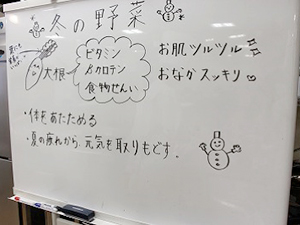 冬の野菜
大根
ビタミン
βカロテン
食物せんい
お肌ツルツル
おなかスッキリ
・体をあたためる
・夏の疲れから、元気を取りもどす。